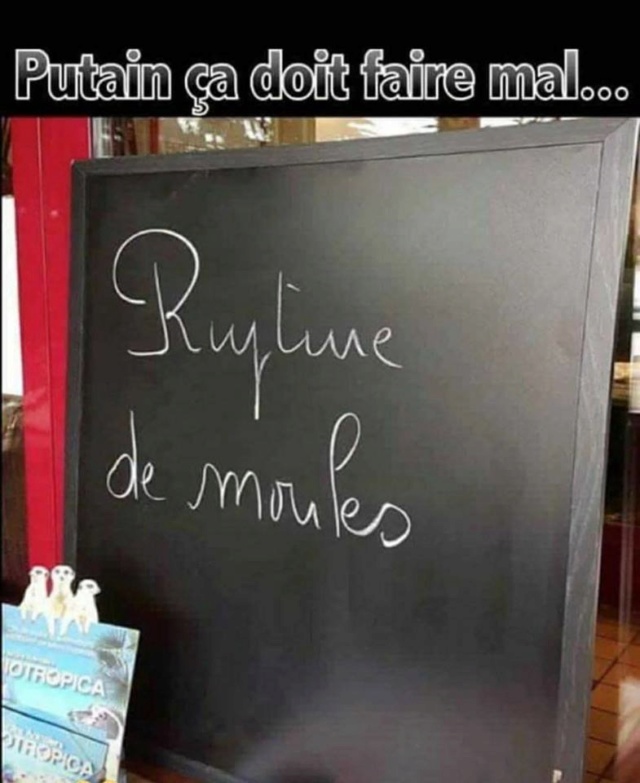 Putain ça doit faire mal...
Rupture
de moules
IOTROPICA
OTROPICA